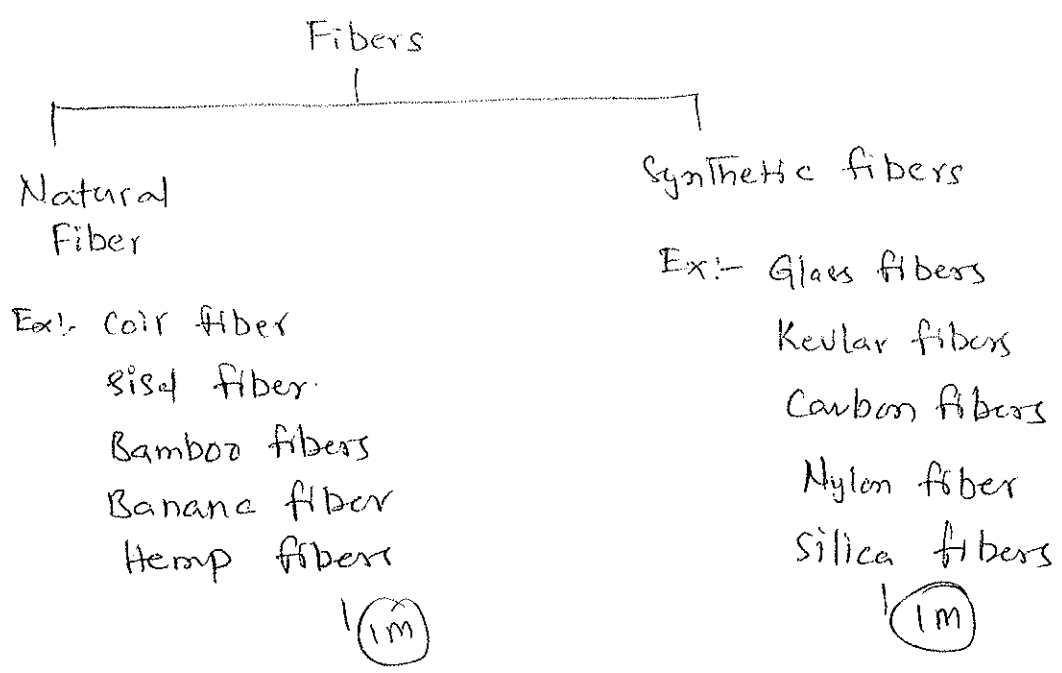 Fibers
Natural
Fiber
Ex:- Coir fiber
Sisal fiber.
Bamboo fibers
Banana fiber
Hemp fibers
1m
Synthetic fibers
Ex:- Glass fibers
Kevlar fibers
Carbon fibers
Nylon fiber
Silica fibers
1m